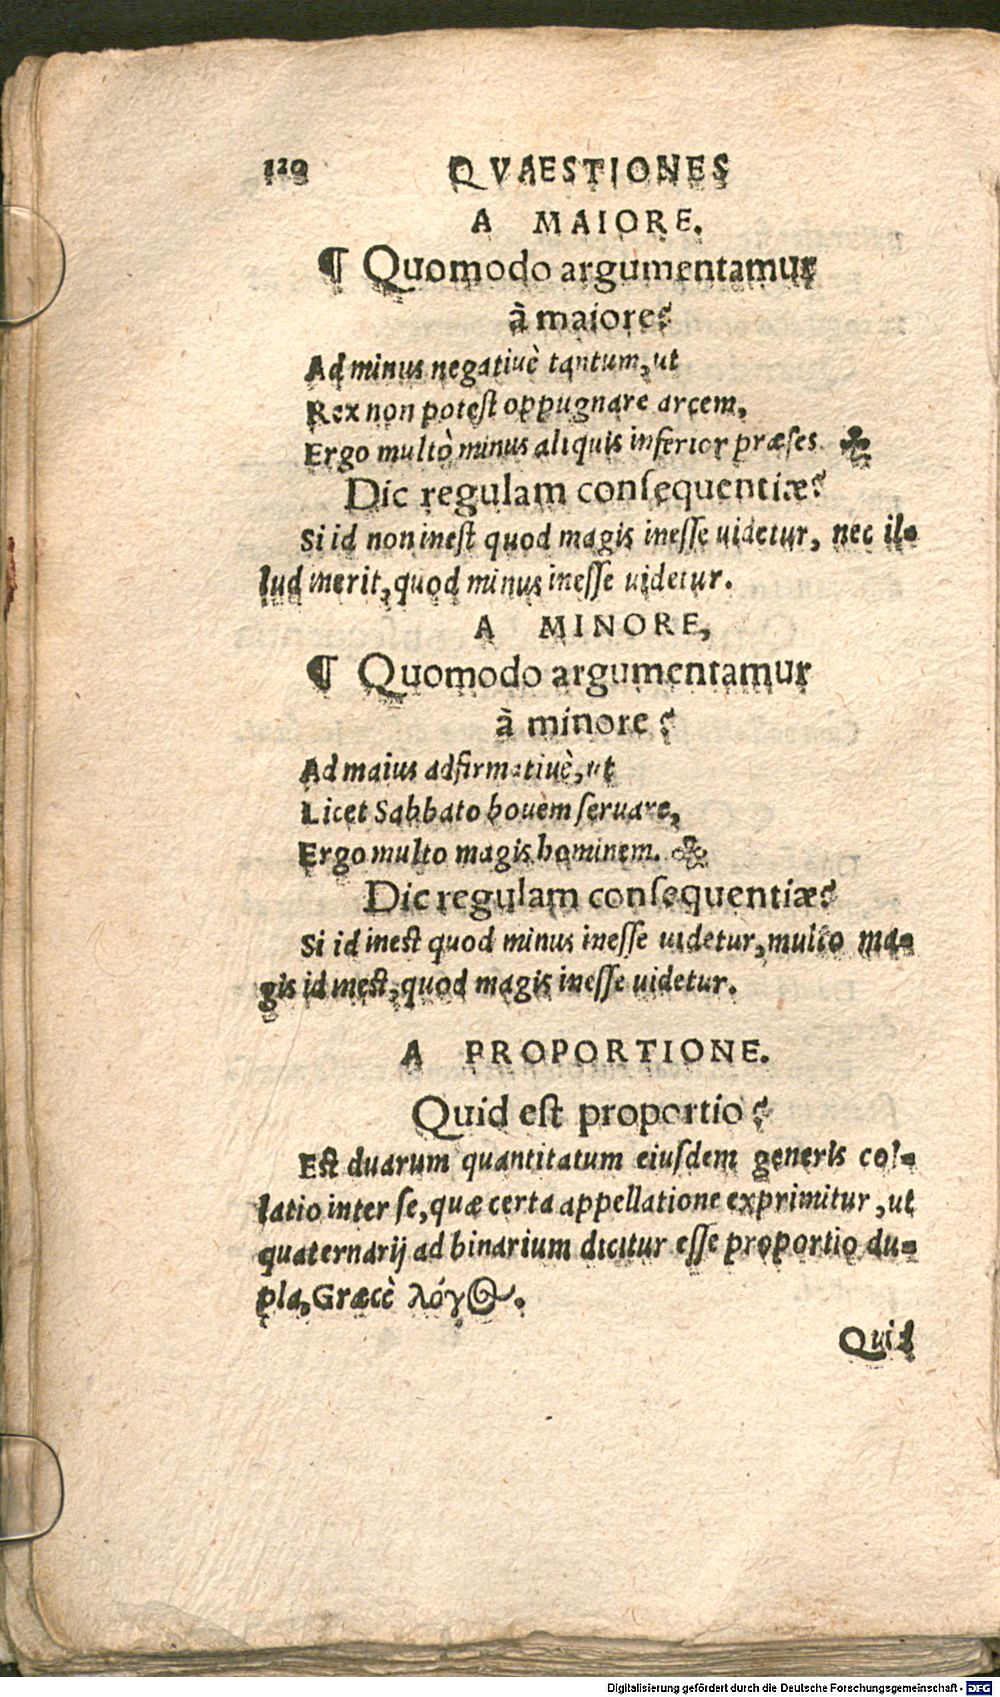 120 QVAESTIONES
A MAIORE.
¶ Quomodo argumentamur
à maiore?
Ad minus negatiuè tantum, ut
Rex non potest oppugnare arcem,
Ergo multò minus aliquis inferior præses. ☘
Dic regulam consequentiæ?
Si id non inest quod magis inesse uidetur, nec il-
lud inerit, quod minus inesse uidetur.
A MINORE,
¶ Quomodo argumentamur
à minore?
Ad maius adfirmatiuè, ut
Licet Sabbato bouem seruare,
Ergo multo magis hominem. ☘
Dic regulam consequentiæ?
Si id inest quod minus inesse uidetur, multo ma-
gis id inest, quod magis inesse uidetur.
A PROPORTIONE.
Quid est proportio?
Est duarum quantitatum eiusdem generis col-
latio inter se, quæ certa appellatione exprimitur, ut
quaternarij ad binarium dicitur esse proportio du-
pla, Græcè λόγος.
Quid
Digitalisierung gefördert durch die Deutsche Forschungsgemeinschaft - DFG